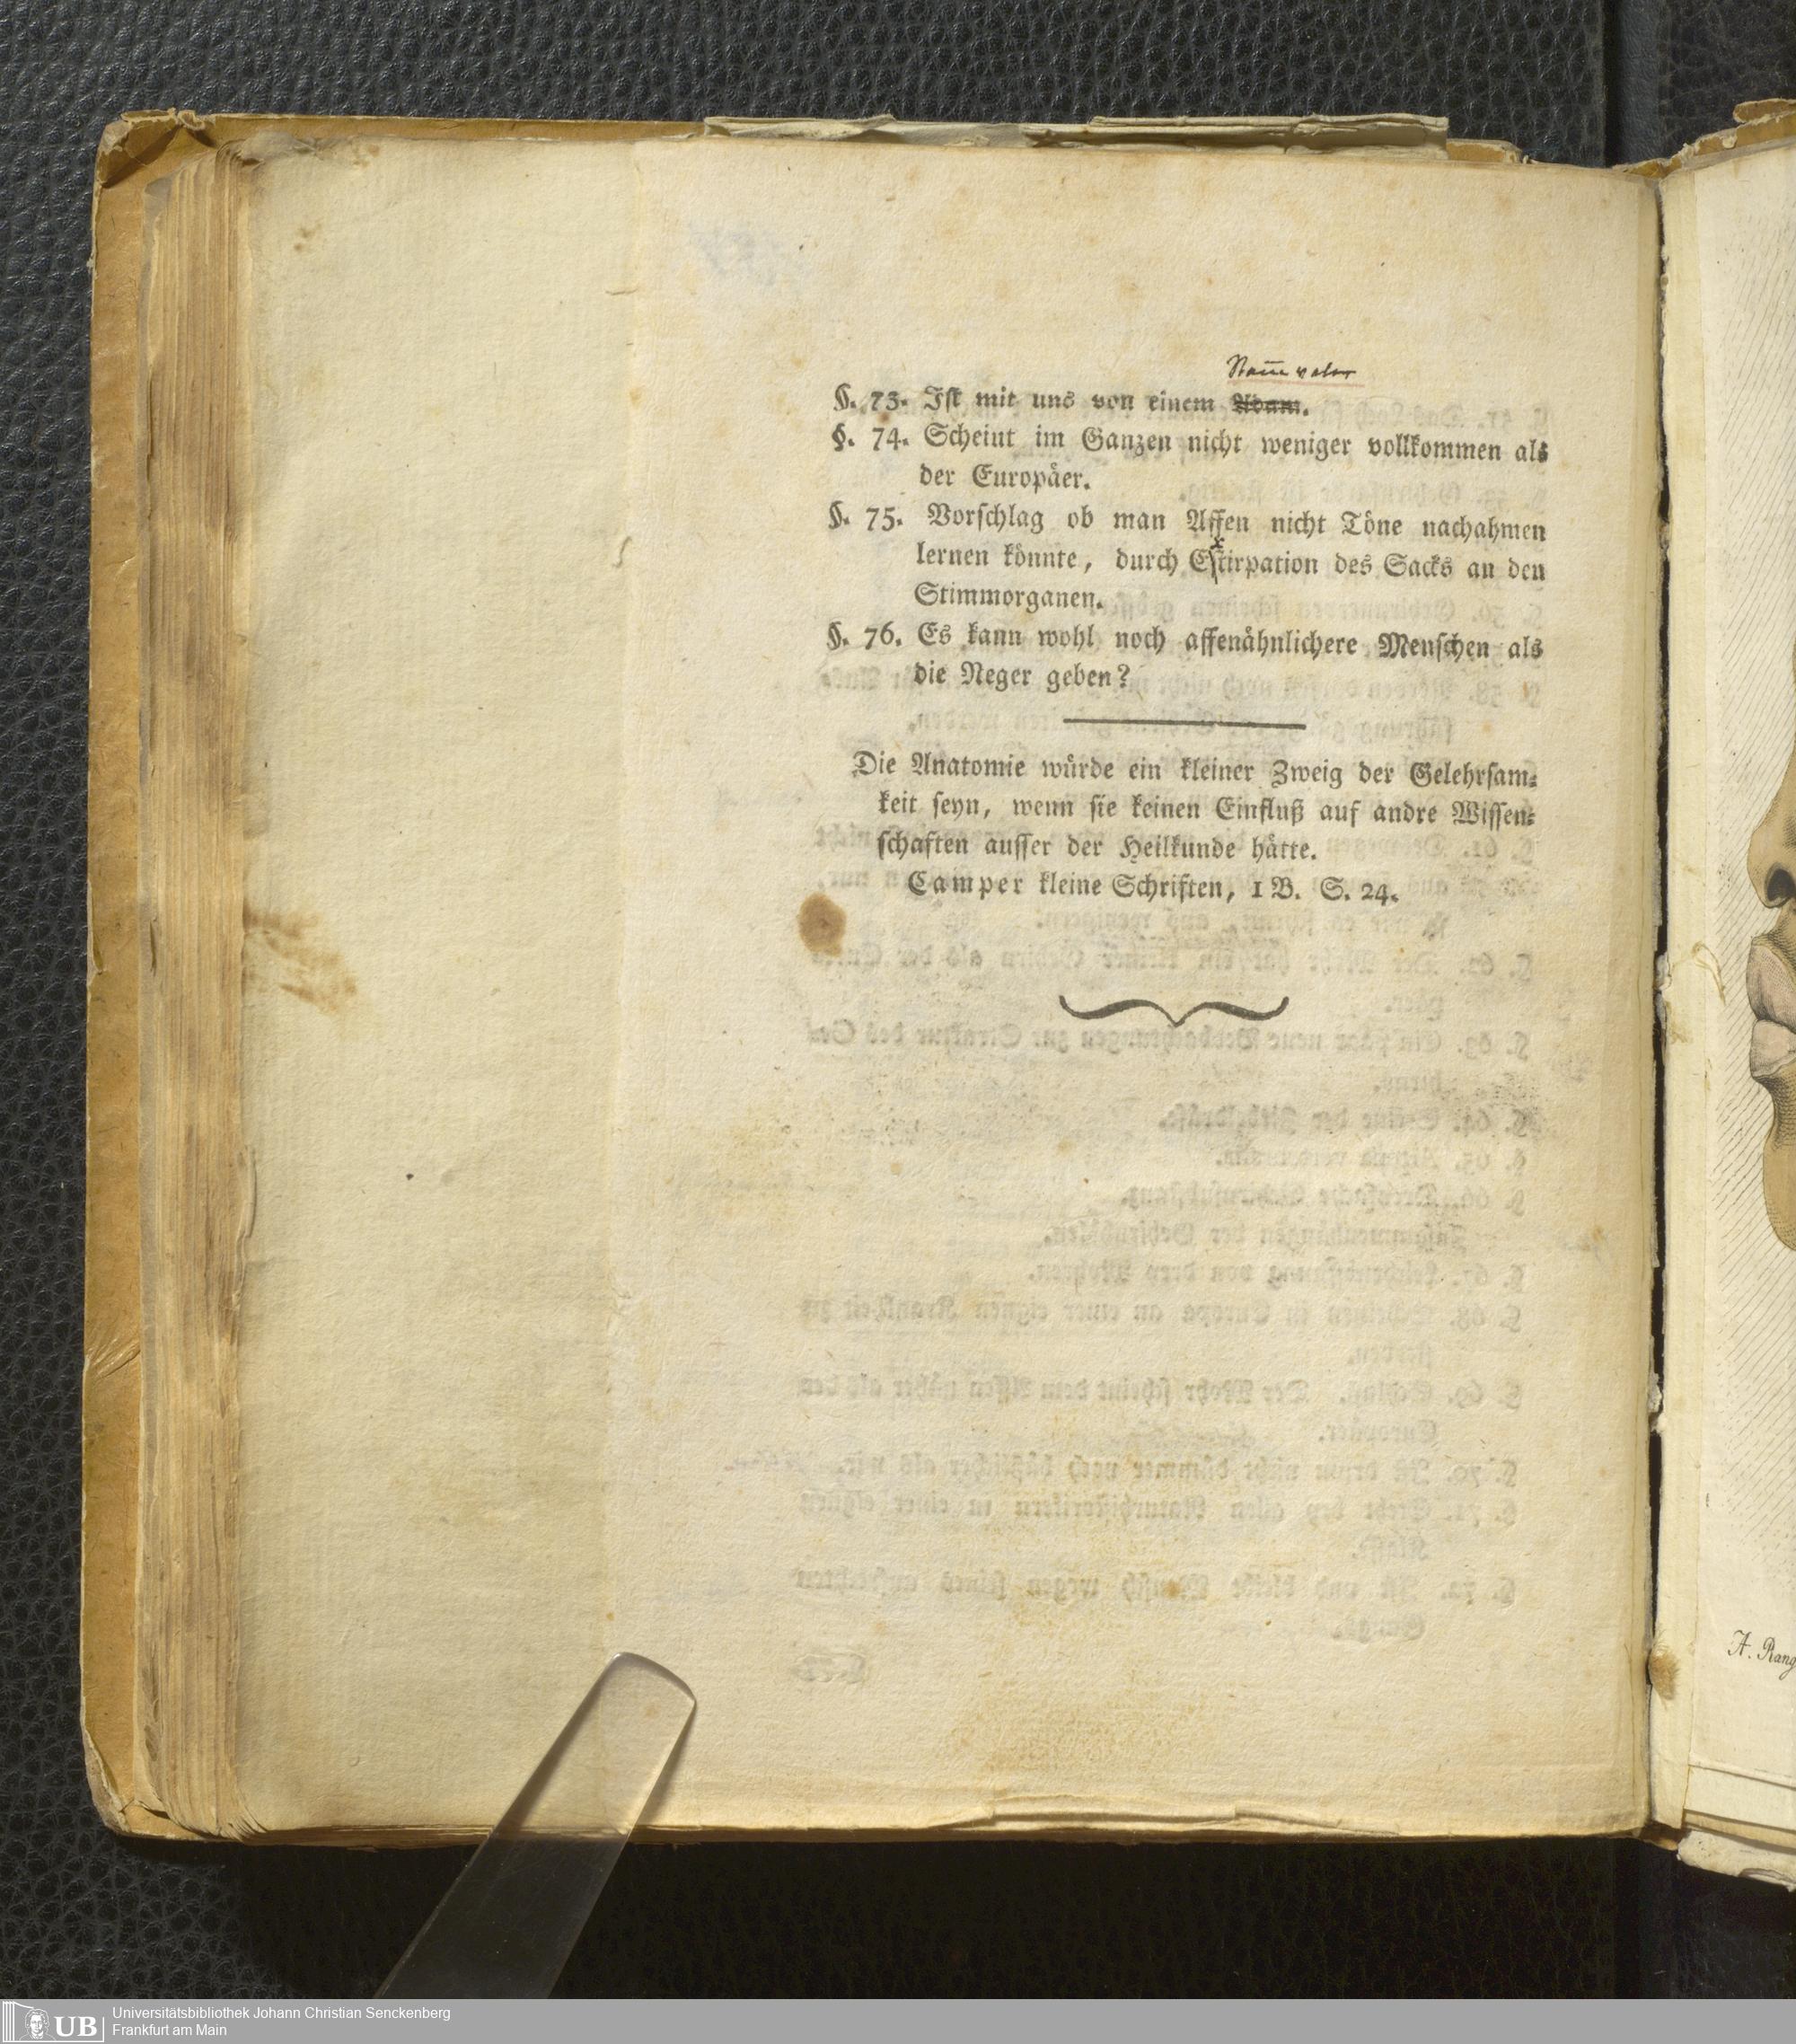 Stam̄vater
§. 73. Iſt mit uns von einem Adam.
§. 74. Scheint im Ganzen nicht weniger vollkommen als
der Europäer.
§. 75. Vorſchlag ob man Affen nicht Töne nachahmen
x
lernen könnte, durch Eſtirpation des Sacks an den
Stimmorganen.
§. 76. Es kann wohl noch affenähnlichere Menſchen als
die Neger geben?
Die Anatomie würde ein kleiner Zweig der Gelehrſam-
keit ſeyn, wenn ſie keinen Einfluß auf andre Wiſſen-
ſchaften auſſer der Heilkunde hätte.
Camper kleine Schriften, 1 B. S. 24.
A. Rang
UB
Universitätsbibliothek Johann Christian Senckenberg
Frankfurt am Main